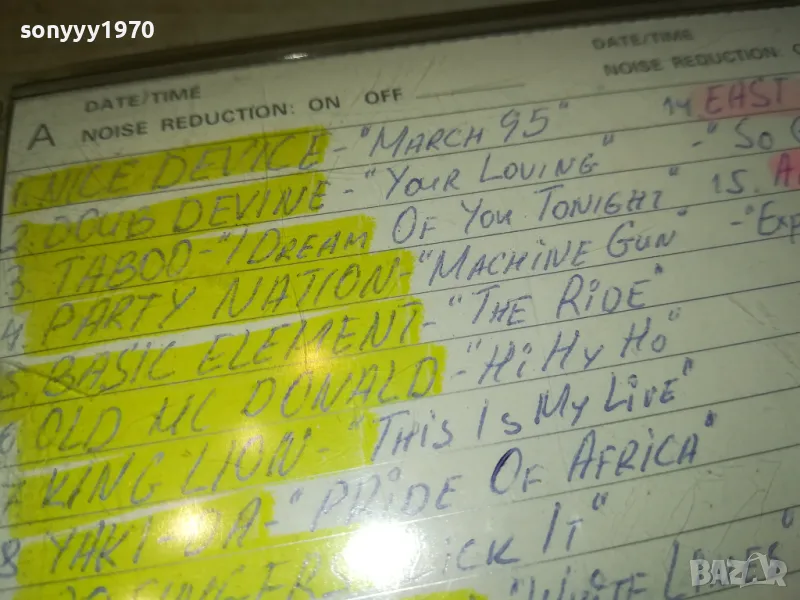 sonyyy1970
DATE/TIME
A NOISE REDUCTION: ON OFF
1. NICE DEVICE - "MARCH 95"
2. DOUG DEVINE - "YOUR LOVING"
3. TABOO - "I DREAM OF YOU TONIGHT"
4. PARTY NATION - "MACHINE GUN"
5. BASIC ELEMENT - "THE RIDE"
6 OLD MC DONALD - "Hi Hy Ho"
7. KING LION - "THIS IS MY LIVE"
8 YAKI-DA - "PRIDE OF AFRICA"
IT"
"WHITE
DATE/TIME
NOISE REDUCTION:
14 EAST
- "SO
15.
BAZAR